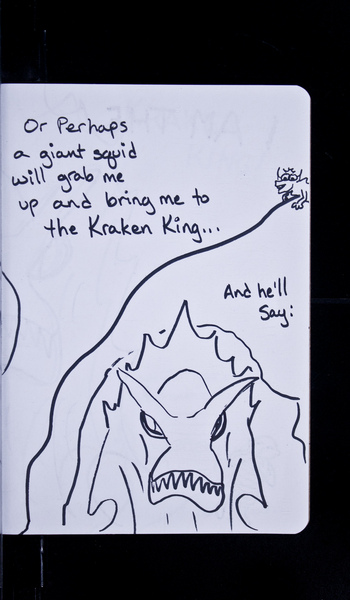 Or Perhaps
a giant squid
will grab me
up and bring me to
the Kraken King...
And he'll
Say: